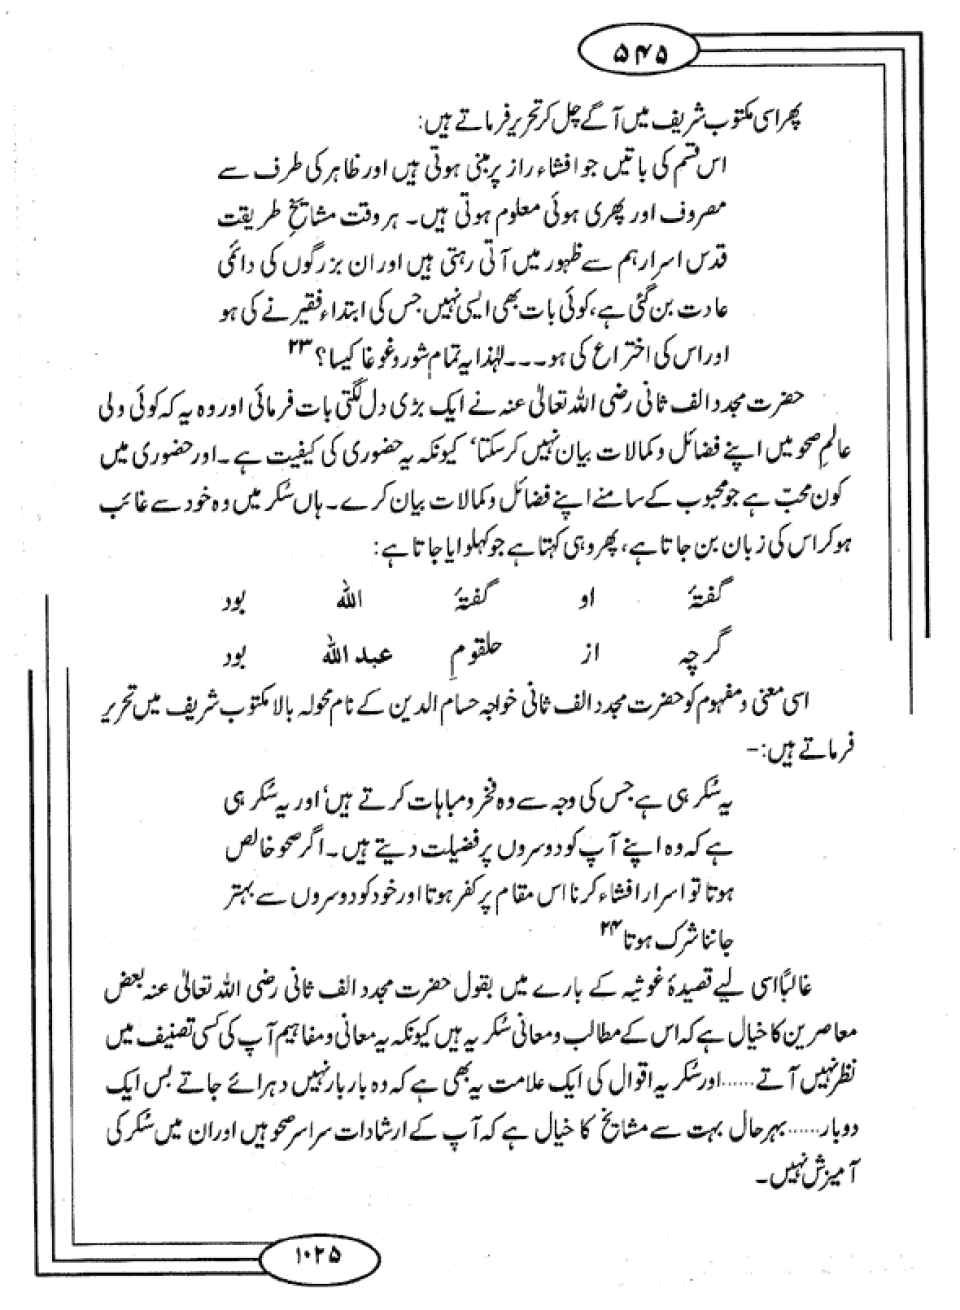 ۵۴۵
پھر اسی مکتوب شریف میں آگے چل کر تحریر فرماتے ہیں:
اس قسم کی باتیں جو افشاء راز پر مبنی ہوتی ہیں اور ظاہر کی طرف سے
مصروف اور پھری ہوئی معلوم ہوتی ہیں۔ ہر وقت مشایخِ طریقت
قدس اسرارہم سے ظہور میں آتی رہتی ہیں اور ان بزرگوں کی دائمی
عادت بن گئی ہے، کوئی بات بھی ایسی نہیں جس کی ابتداء فقیر نے کی ہو
اور اس کی اختراع کی ہو۔۔۔ لہٰذا یہ تمام شور و غوغا کیسا؟ ۲۳
حضرت مجدد الف ثانی رضی اللہ تعالیٰ عنہ نے ایک بڑی دل لگتی بات فرمائی اور وہ یہ کہ کوئی ولی
عالمِ صحو میں اپنے فضائل و کمالات بیان نہیں کرسکتا، کیونکہ یہ حضوری کی کیفیت ہے۔ اور حضوری میں
کون محبّ ہے جو محبوب کے سامنے اپنے فضائل و کمالات بیان کرے۔ ہاں سُکر میں وہ خود سے غائب
ہو کر اس کی زبان بن جاتا ہے، پھر وہی کہتا ہے جو کہلوایا جاتا ہے:
گفتۂ او گفتۂ اللہ بود
گرچہ از حلقومِ عبداللہ بود
اسی معنی و مفہوم کو حضرت مجدد الف ثانی خواجہ حسام الدین کے نام محولہ بالا مکتوب شریف میں تحریر
فرماتے ہیں:-
یہ سُکر ہی ہے جس کی وجہ سے وہ فخر و مباہات کرتے ہیں، اور یہ سُکر ہی
ہے کہ وہ اپنے آپ کو دوسروں پر فضیلت دیتے ہیں۔ اگر صحو خالص
ہوتا تو اسرار افشاء کرنا اس مقام پر کفر ہوتا اور خود کو دوسروں سے بہتر
جاننا شرک ہوتا ۲۴
غالباً اسی لیے قصیدۂ غوثیہ کے بارے میں بقول حضرت مجدد الف ثانی رضی اللہ تعالیٰ عنہ بعض
معاصرین کا خیال ہے کہ اس کے مطالب و معانی سُکریہ ہیں کیونکہ یہ معانی و مفاہیم آپ کی کسی تصنیف میں
نظر نہیں آتے...... اور سُکریہ اقوال کی ایک علامت یہ بھی ہے کہ وہ بار بار نہیں دہرائے جاتے بس ایک
دو بار...... بہرحال بہت سے مشایخ کا خیال ہے کہ آپ کے ارشادات سراسر صحو ہیں اور ان میں سُکر کی
آمیزش نہیں۔
۱۰۲۵